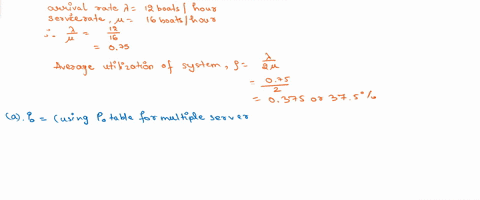 arrival rate λ = 12 boats / hour
service rate, μ = 16 boats/hour
∴ λ/μ = 12/16
= 0.75
Average utilization of system, ρ = λ/2μ
= 0.75/2
= 0.375 or 37.5%
(a). P₀ = (using P₀ table for multiple server